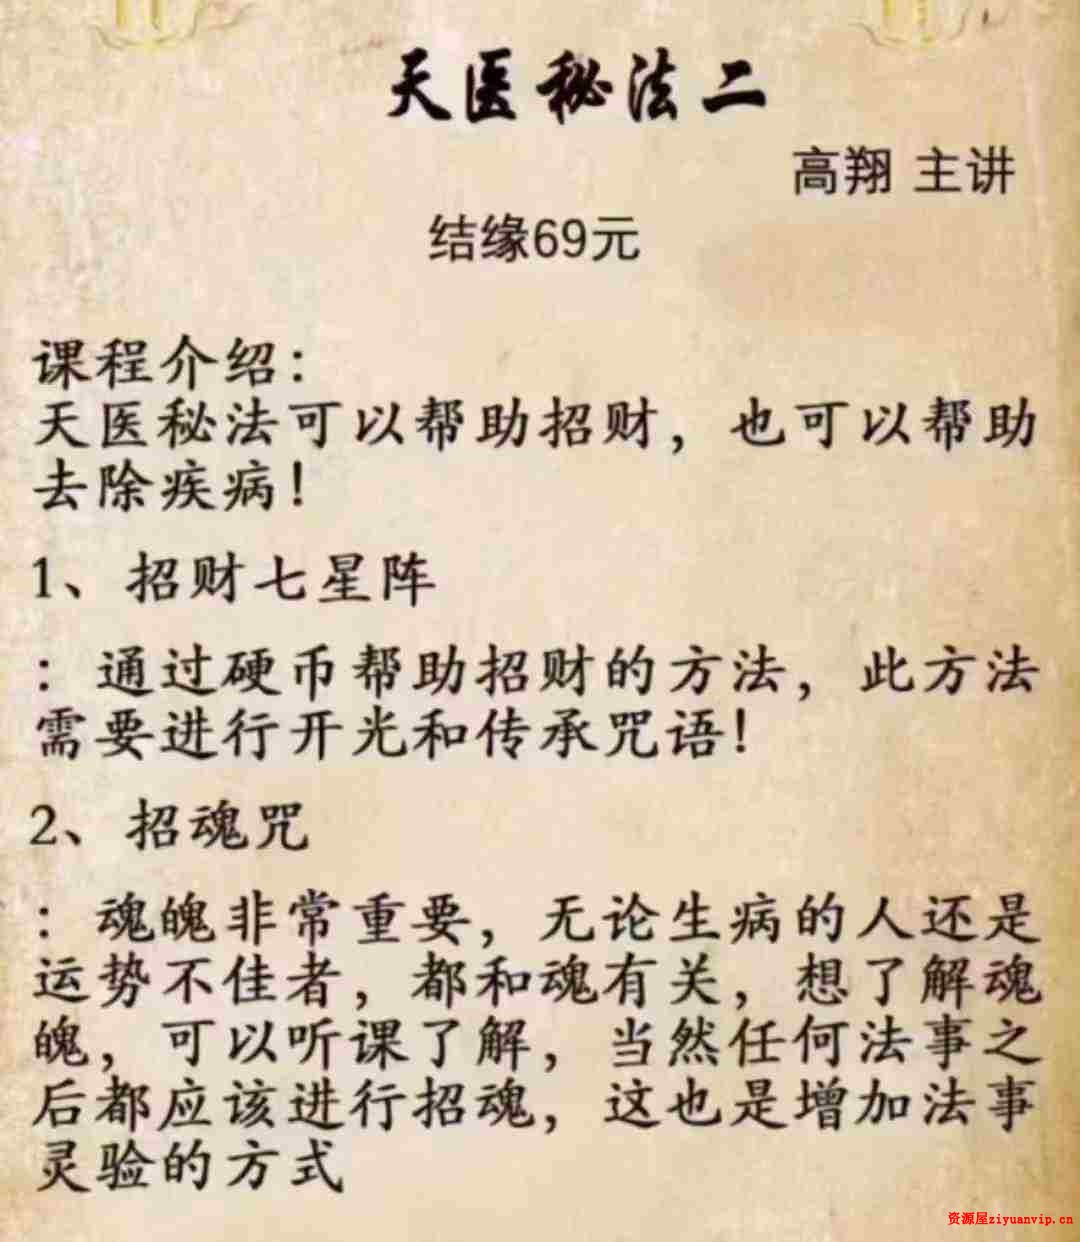 天医秘法二
高翔 主讲
结缘69元
课程介绍：
天医秘法可以帮助招财，也可以帮助
去除疾病！
1、招财七星阵
：通过硬币帮助招财的方法，此方法
需要进行开光和传承咒语！
2、招魂咒
：魂魄非常重要，无论生病的人还是
运势不佳者，都和魂有关，想了解魂
魄，可以听课了解，当然任何法事之
后都应该进行招魂，这也是增加法事
灵验的方式
资源屋ziyuanvip.cn